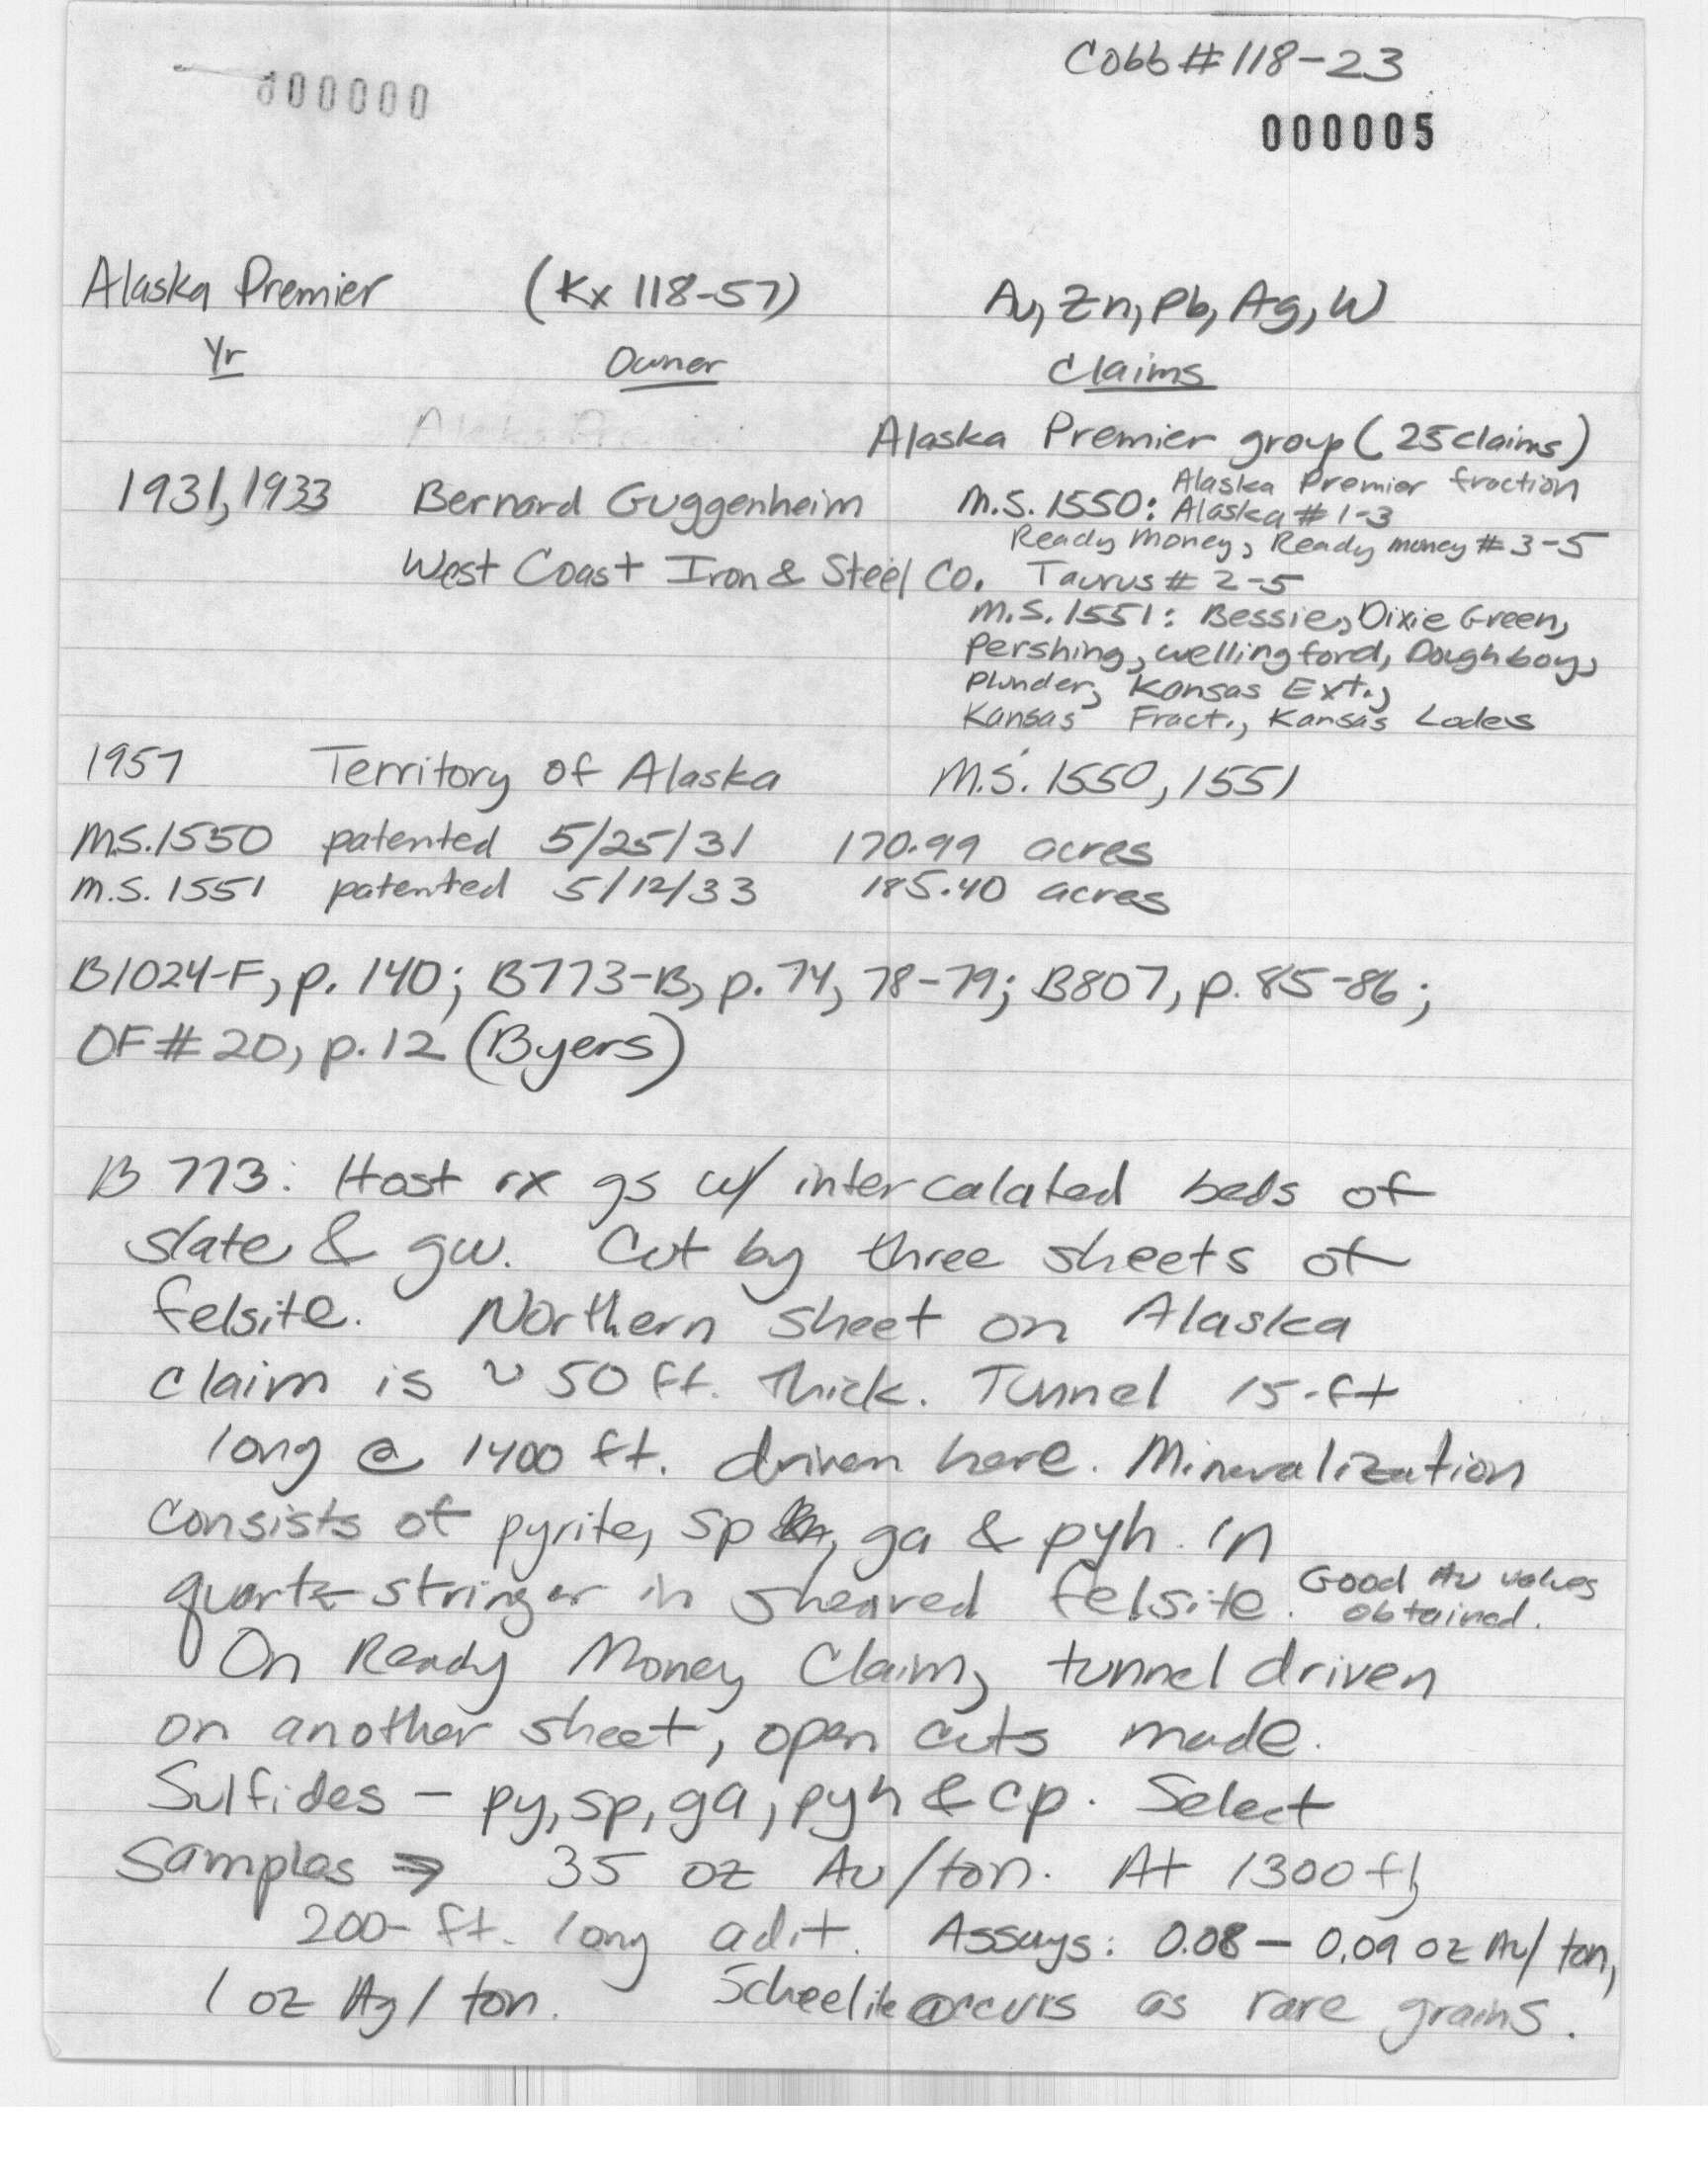 Cobb # 118-23
000000
000005
Alaska Premier (Kx 118-57) Au, Zn, Pb, Ag, W
Yr Owner Claims
Alaska Premier group (25 claims)
1931, 1933 Bernard Guggenheim M.S. 1550: Alaska Premier fraction
Alaska # 1-3
Ready Money, Ready money # 3-5
West Coast Iron & Steel Co. Taurus # 2-5
M.S. 1551: Bessie, Dixie Green,
Pershing, Wellingford, Doughboy,
Plunder, Kansas Ext.,
Kansas Fract., Kansas Lodes
1957 Territory of Alaska M.S. 1550, 1551
M.S. 1550 patented 5/25/31 170.99 acres
M.S. 1551 patented 5/12/33 185.40 acres
B1024-F, p. 140; B773-B, p. 74, 78-79; B807, p. 85-86;
OF # 20, p. 12 (Byers)
B 773: Host rx gs w/ intercalated beds of
slate & gw. Cut by three sheets of
felsite. Northern sheet on Alaska
claim is ~ 50 ft. thick. Tunnel 15-ft
long @ 1400 ft. driven here. Mineralization
consists of pyrite, sp, ga & pyh. in
quartz stringer in sheared felsite. Good Au values
obtained.
On Ready Money Claim, tunnel driven
on another sheet, open cuts made.
Sulfides - py, sp, ga, pyh & cp. Select
samples ⇒ 35 oz Au/ton. At 1300 ft,
200-ft. long adit. Assays: 0.08 - 0.09 oz Au/ton,
1 oz Ag/ton. Scheelite occurs as rare grains.